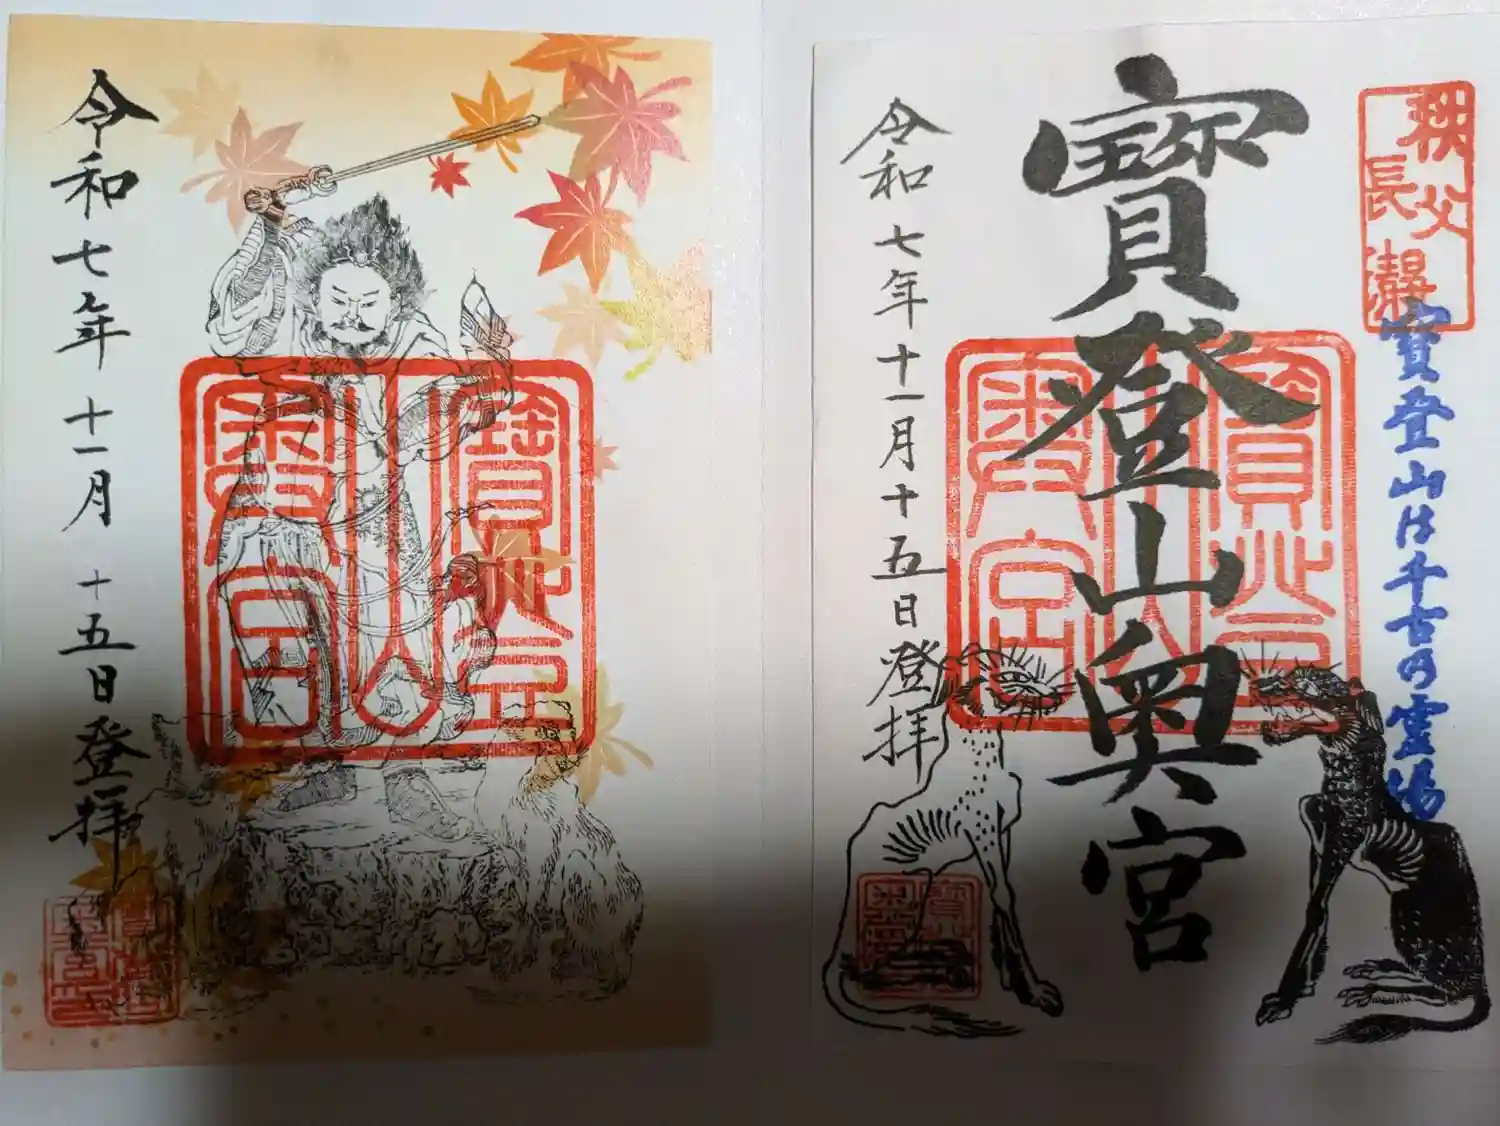 秩父
長瀞
寳登山は千古の霊場
寳登山
奥宮
寳登山奥宮
令和七年十一月十五日登拝
寳登山
奥宮
令和七年十一月十五日登拝